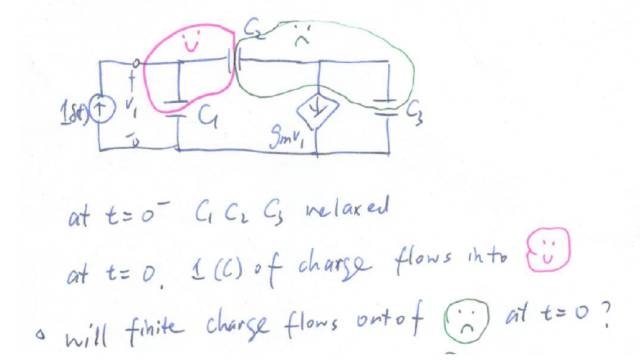 C2
1δ(t)
+
V1
-
C1
gmV1
C3
at t=0⁻ C1 C2 C3 relaxed
at t=0, 1(C) of charge flows into
will finite charge flows ontof at t=0?